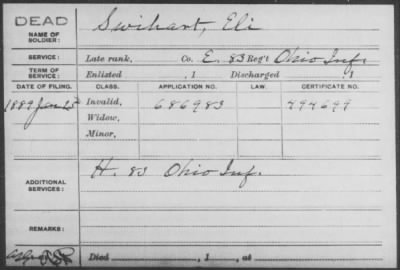 DEAD
NAME OF SOLDIER: Swihart, Eli
SERVICE: Late rank, Co. E. 83 Reg't Ohio Inf.
TERM OF SERVICE: Enlisted , 1 Discharged , 1
DATE OF FILING. CLASS. APPLICATION NO. LAW. CERTIFICATE NO.
1889 Jan 25 Invalid, 686983 494699
Widow,
Minor,
ADDITIONAL SERVICES: H. 83 Ohio Inf.
REMARKS:
Died , 1 , at